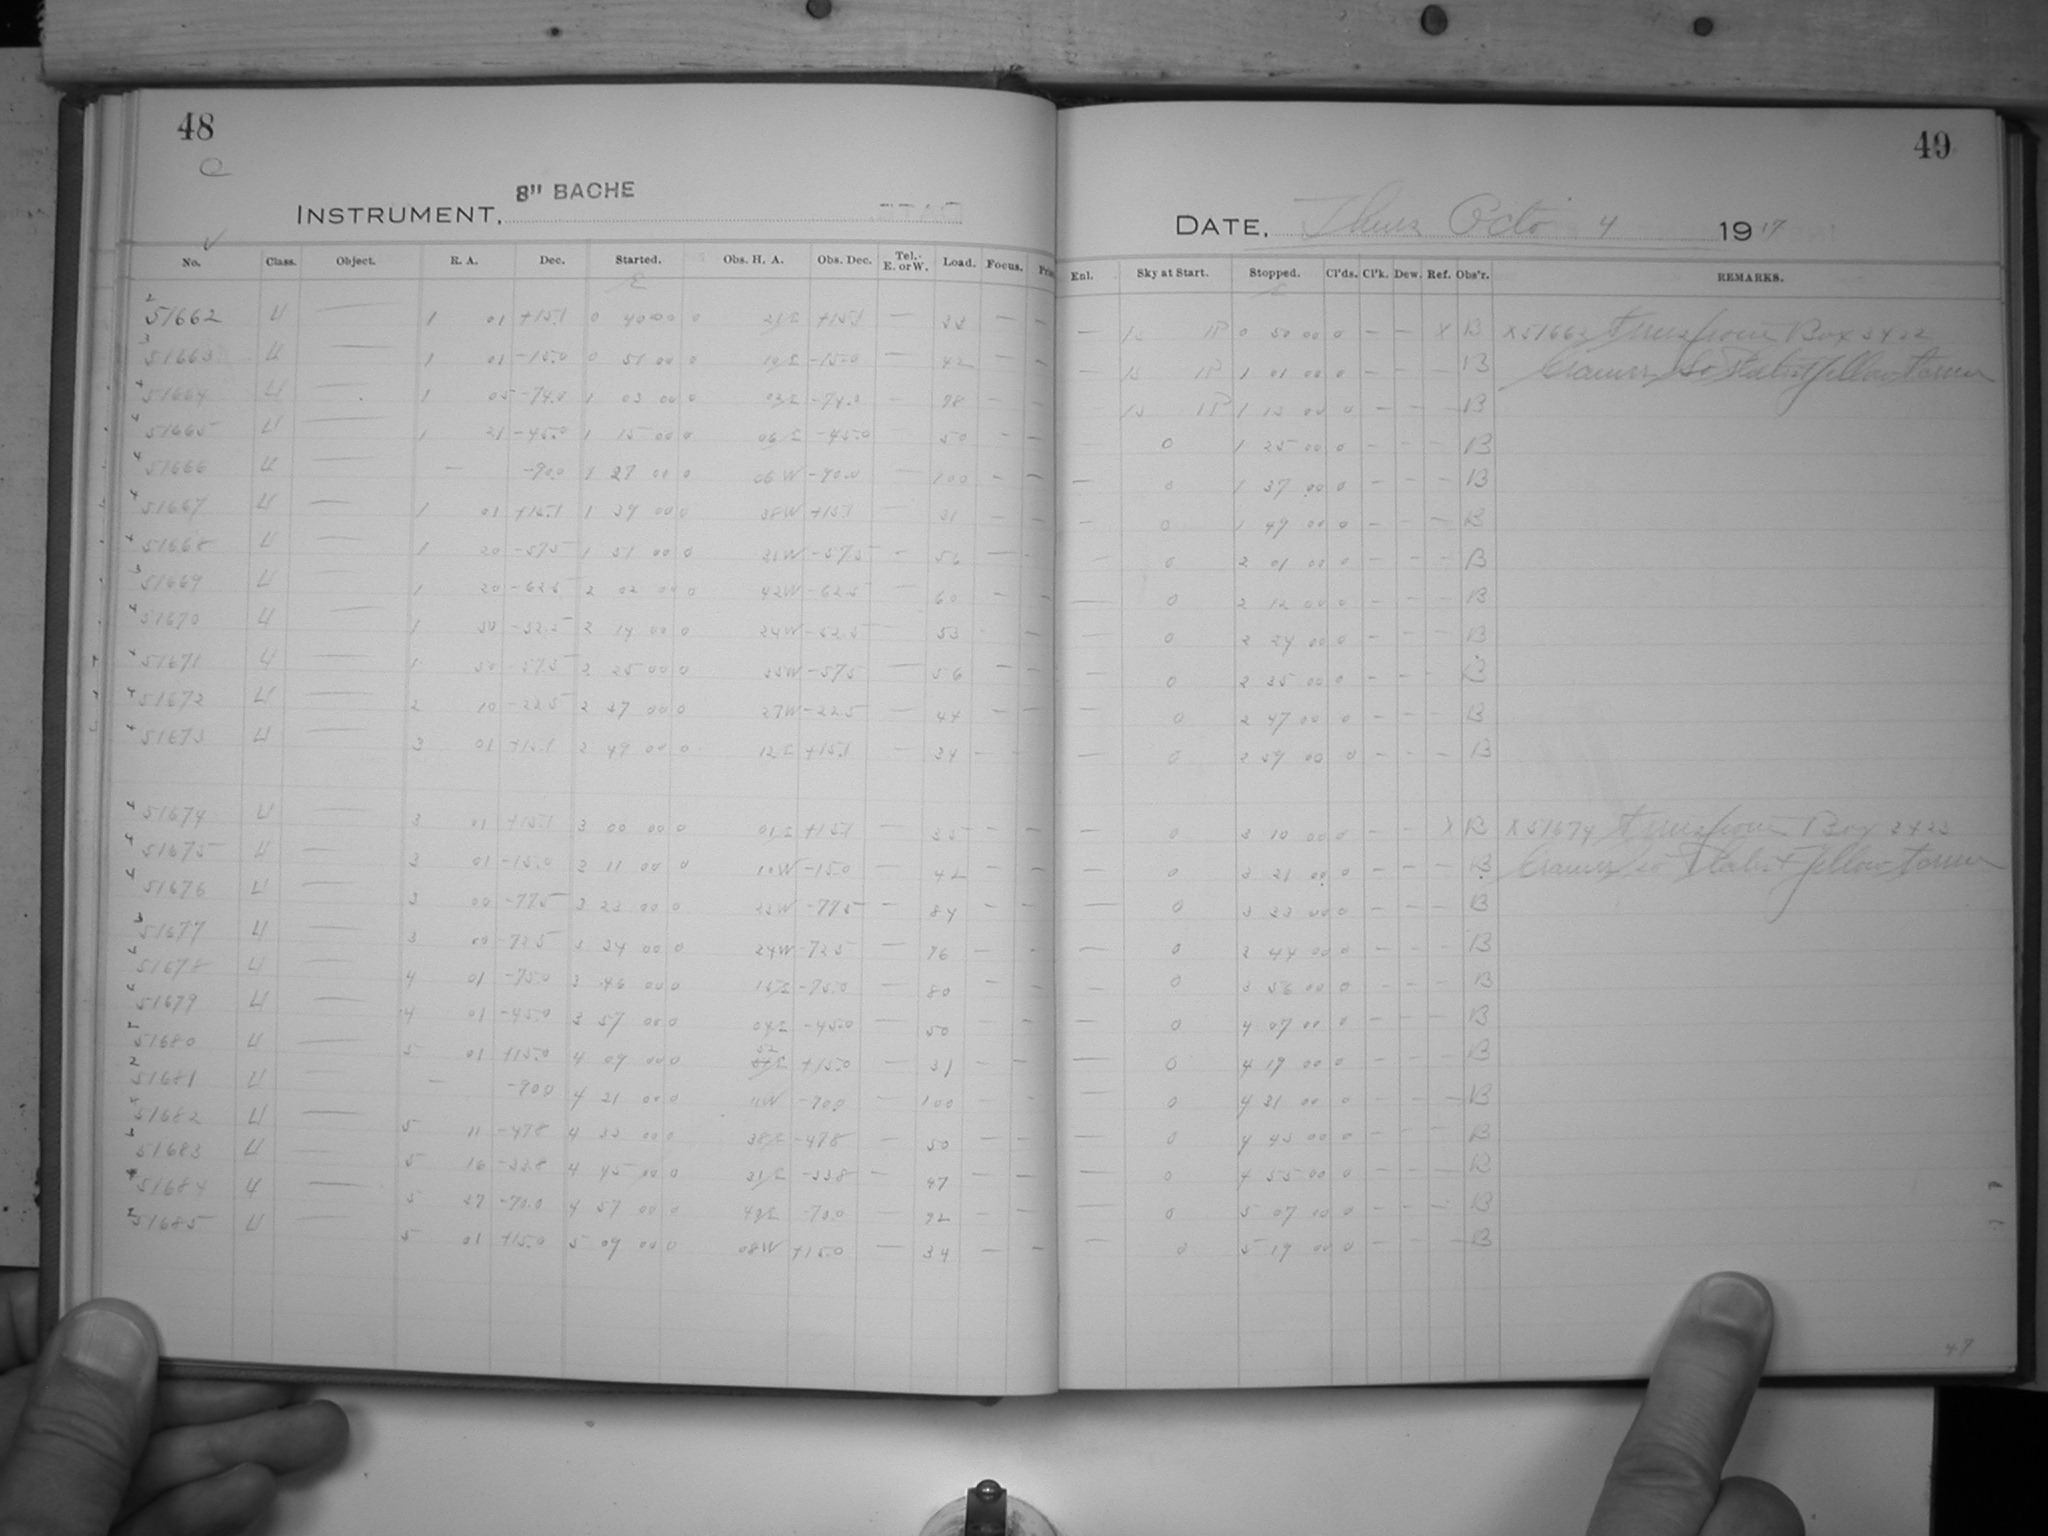 48
49
INSTRUMENT, 8" BACHE
DATE, Thurs Octo 4 1917
No. Class. Object. R. A. Dec. Started. Obs. H. A. Obs. Dec. Tel. E. or W. Load. Focus. Enl. Sky at Start. Stopped. Cl'ds. Cl'k. Dew. Ref. Obs'r. REMARKS.
51662 4 — 1 01 +15.1 0 40 00 0 21E +15.1 — 33 — 0 50 00 0 — — X B X51662 Box 3422
51663 4 — 1 01 -15.0 0 51 00 0 10E -15.0 — 42 — 1 01 00 0 B Cramers Yellow
51664 4 — 1 05 -74.0 1 03 00 0 03E — 78 1 13 00 0 — — — B
51665 4 — 1 21 -45.0 1 15 00 0 06E -45.0 50 — — 0 1 25 00 0 — — — B
51666 4 — — -90.0 1 27 00 0 06W -90.0 — 100 — — — 0 1 37 00 0 — — — B
51667 4 — 1 01 +15.1 1 39 00 0 38W +15.1 — 31 — — — 0 1 49 00 0 — — — B
51668 4 — 1 20 -57.5 1 51 00 0 31W -57.5 — 56 — — — 0 2 01 00 0 — — — B
51669 4 — 1 20 -62.5 2 02 00 0 42W -62.5 — 60 — — — 0 2 12 00 0 — — — B
51670 4 — 1 50 -52.5 2 14 00 0 24W -52.5 — 53 — — — 0 2 24 00 0 — — — B
51671 4 — 1 50 -57.5 2 25 00 0 35W -57.5 — 56 — — — 0 2 35 00 0 — — — B
51672 4 — 2 10 -22.5 2 37 00 0 27W -22.5 — 44 — — — 0 2 47 00 0 — — — B
51673 4 — 3 01 +15.1 2 49 00 0 12E +15.1 — 34 — — — 0 2 59 00 0 — — — B
51674 4 — 3 01 +15.1 3 00 00 0 01E +15.1 — 35 — — — 0 3 10 00 0 — — X B X51674 Box 3423
51675 4 — 3 01 -15.0 3 11 00 0 10W -15.0 — 42 — — — 0 3 21 00 0 — — — B Cramers Yellow
51676 4 — 3 00 -77.5 3 23 00 0 23W -77.5 — 84 — — — 0 3 33 00 0 — — — B
51677 4 — 3 00 -72.5 3 34 00 0 34W -72.5 — 76 — — — 0 3 44 00 0 — — — B
51678 4 — 4 01 -75.0 3 46 00 0 15E -75.0 — 80 — — — 0 3 56 00 0 — — — B
51679 4 — 4 01 -45.0 3 57 00 0 04E -45.0 — 50 — — — 0 4 07 00 0 — — — B
51680 4 — 5 01 +15.0 4 09 00 0 52E +15.0 — 31 — — — 0 4 19 00 0 — — — B
51681 4 — — -90.0 4 21 00 0 11W -90.0 — 100 — — — 0 4 31 00 0 — — — B
51682 4 — 5 11 -47.8 4 33 00 0 38E -47.8 — 50 — — — 0 4 43 00 0 — — — B
51683 4 — 5 16 -33.8 4 45 00 0 31E -33.8 — 47 — — — 0 4 55 00 0 — — — B
51684 4 — 5 -70.0 4 57 00 0 -70.0 — 92 — — — 0 5 07 00 0 — — — B
51685 4 — 5 01 +15.0 5 09 00 0 08W +15.0 — 34 — — — 0 5 19 00 0 — — — B